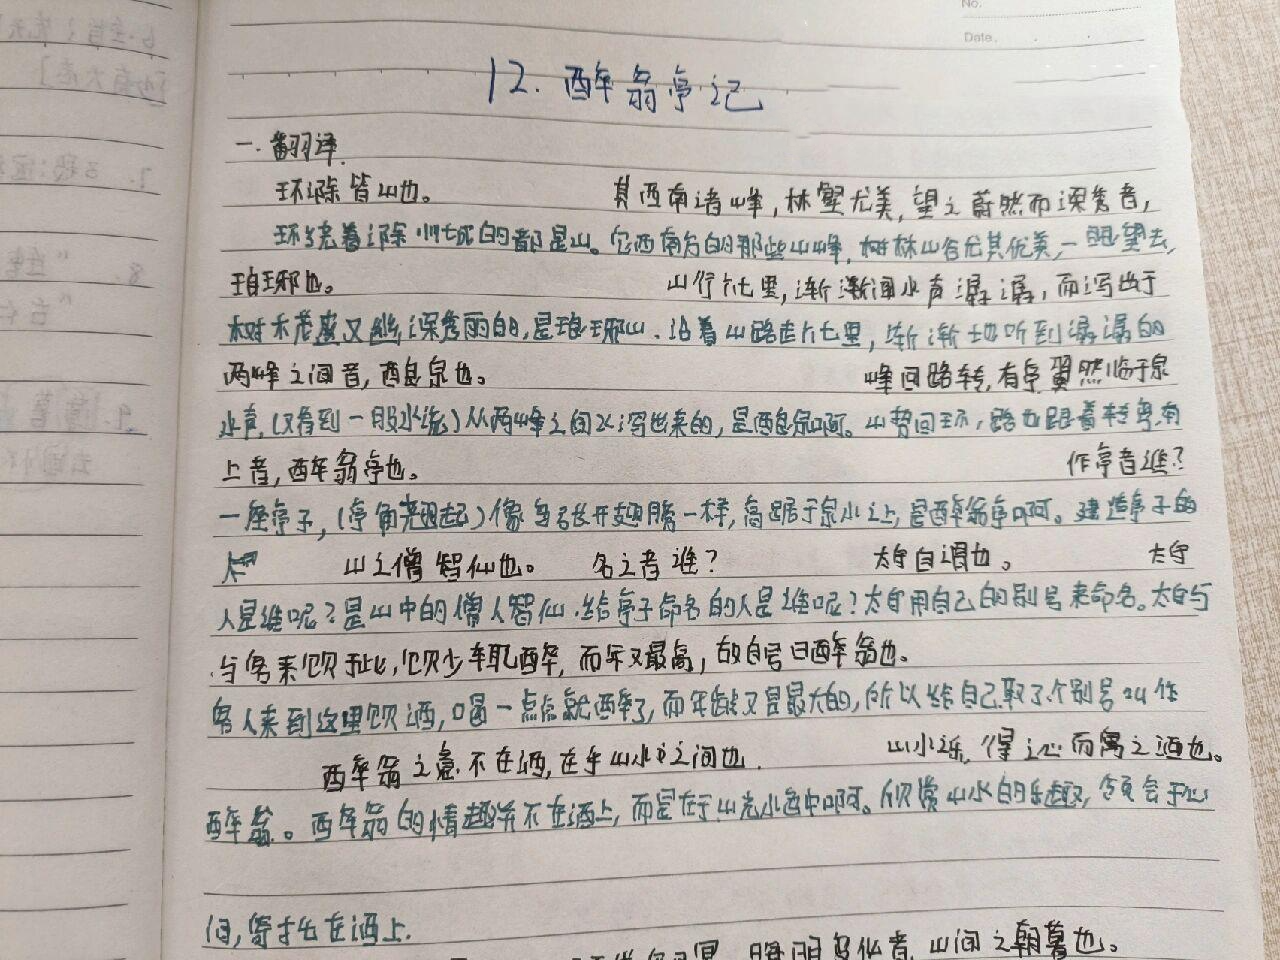 No.
Date.
12. 醉翁亭记
一. 翻译.
环滁皆山也。 其西南诸峰,林壑尤美,望之蔚然而深秀者,
环绕着滁州城的都是山。它西南方的那些山峰,树林山谷尤其优美,一眼望去,
琅琊也。 山行六七里,渐渐闻水声潺潺,而泻出于
树木茂盛又幽深秀丽的,是琅琊山.沿着山路走六七里,渐渐地听到潺潺的
两峰之间者,酿泉也。 峰回路转,有亭翼然临于泉
水声,(又看到一股水流)从两峰之间飞泻出来的,是酿泉啊。山势回环,路也跟着转弯,有
上者,醉翁亭也。 作亭者谁?
一座亭子,(亭角翘起)像鸟张开翅膀一样,高踞于泉水之上,是醉翁亭啊。建造亭子的
山之僧智仙也。 名之者谁? 太守自谓也。 太守
人是谁呢?是山中的僧人智仙.给亭子命名的人是谁呢?太守用自己的别号来命名。太守与
与客来饮于此,饮少辄醉,而年又最高,故自号曰醉翁也。
客人来到这里饮酒,喝一点点就醉了,而年龄又是最大的,所以给自己取了个别号叫作
醉翁之意不在酒,在乎山水之间也. 山水之乐,得之心而寓之酒也。
醉翁。醉翁的情趣并不在酒上,而是在于山光水色中啊。欣赏山水的乐趣,领会于心
间,寄托在酒上.
晦明变化者,山间之朝暮也。